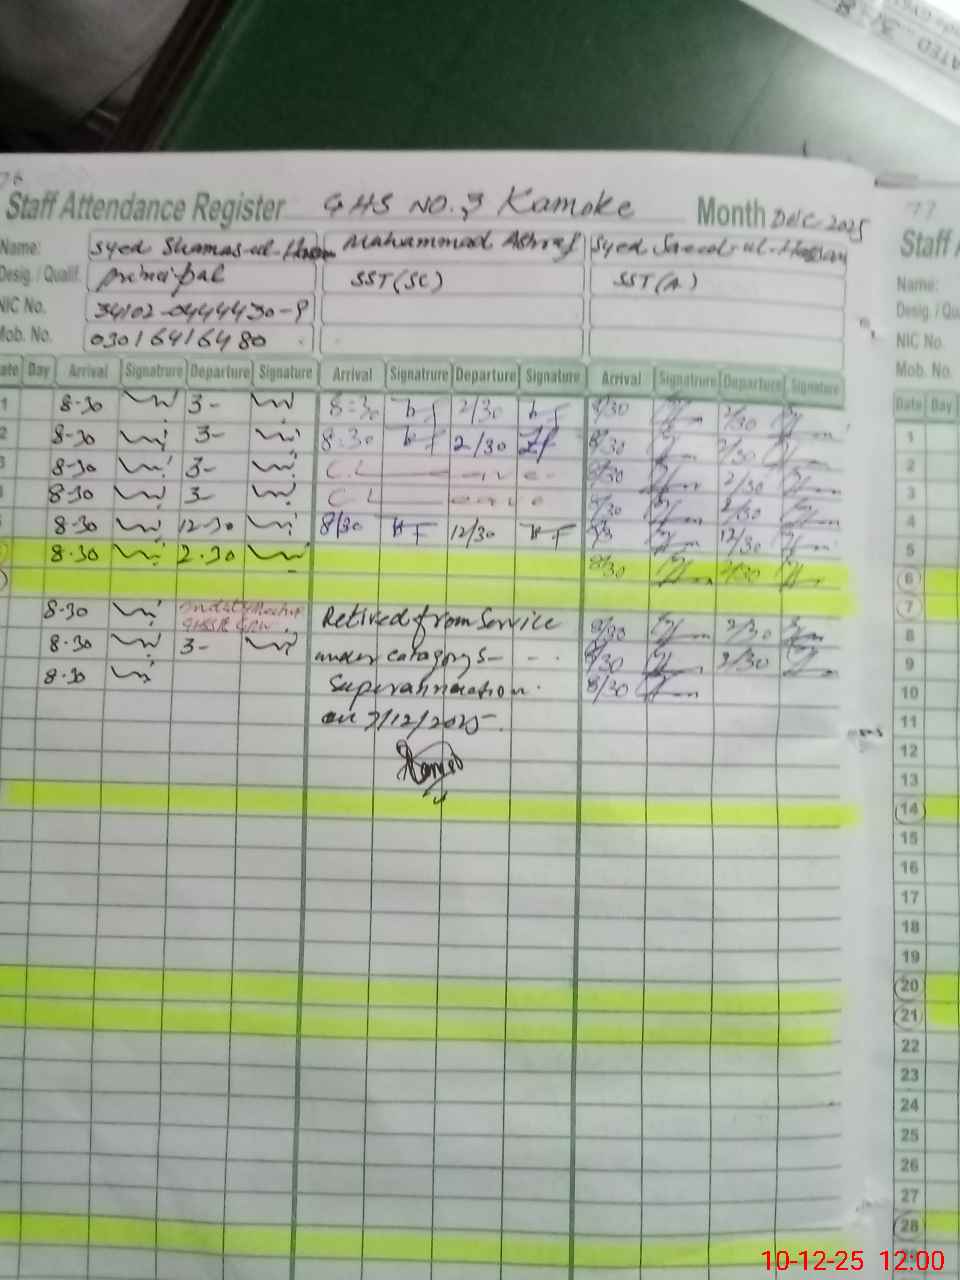 Staff Attendance Register GHS NO. 3 Kamoke Month Dec 2025
Name: Syed Shamas-ul-Hassan Muhammad Ashraf Syed Saeed-ul-Hassan
Desig. / Qualif. principal SST(SC) SST(A)
NIC No. 34102-0444430-9
Mob. No. 03016416480
Date Day Arrival Signatrure Departure Signature Arrival Signatrure Departure Signature Arrival Signatrure Departure Signature
1 8-30 3- 8-30 2/30 8/30 2/30
2 8-30 3- 8.30 2/30 8/30 2/30
3 8-30 3- C.L 8/30 2/30
8-30 3- C L 8/30 2/30
8-30 12-30 8/30 12/30 12/30
8-30 2-30 8/30 2/30
8-30 Retired from Service 8/30 2/30
8-30 3- under catagory 8/30 2/30
8-30 Superannuation. 8/30
on 7/12/2025
77
Staff
Name:
Desig. / Qu
NIC No.
Mob. No.
Date Day
1
2
3
4
5
6
7
8
9
10
11
12
13
14
15
16
17
18
19
20
21
22
23
24
25
26
27
28
10-12-25 12:00